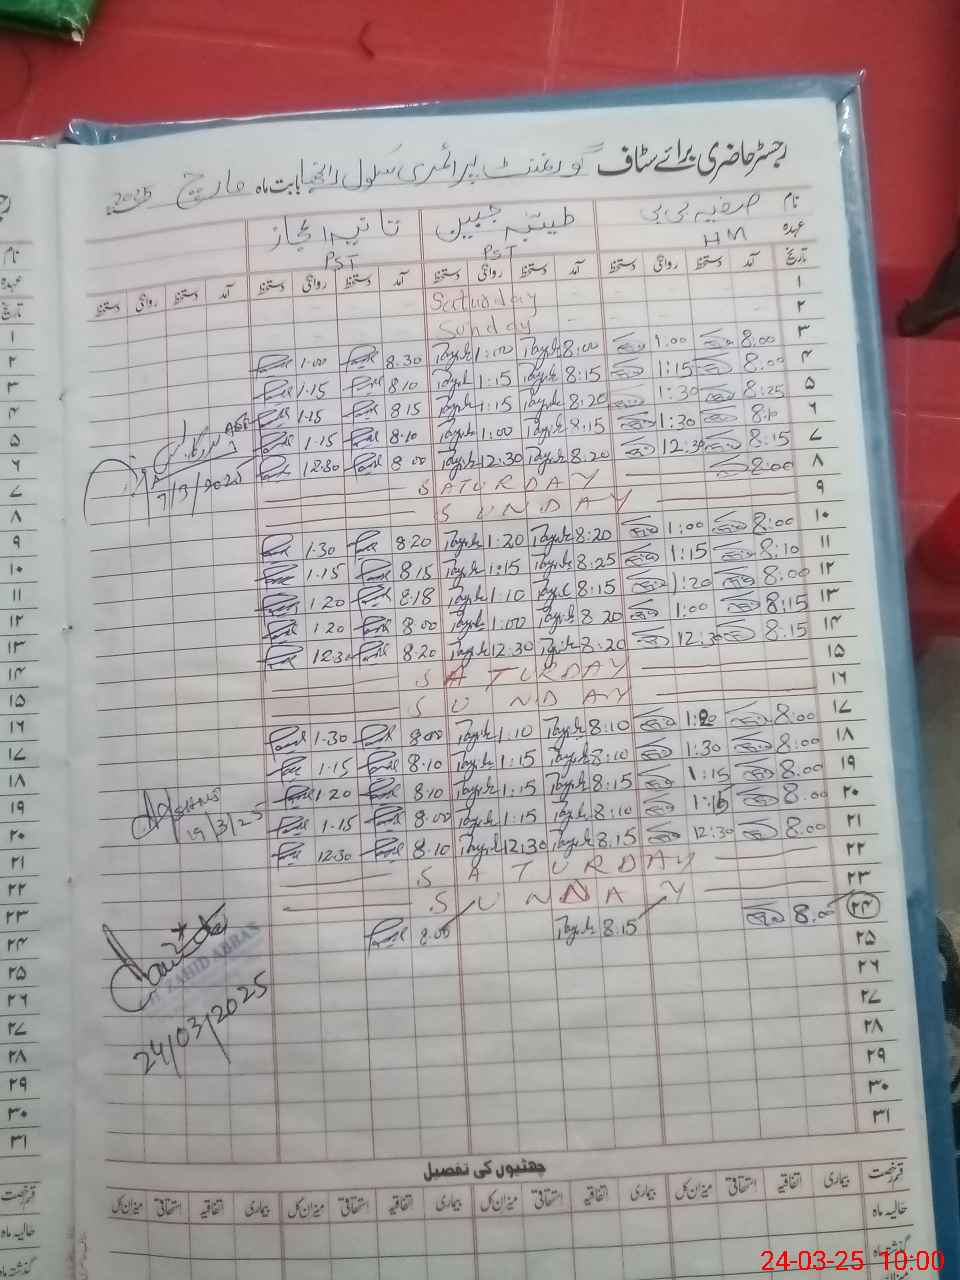 رجسٹر حاضری برائے سٹاف گورنمنٹ پرائمری سکول بابت ماہ مارچ 2025
نام صفیہ بی بی طیبہ جبین تانیہ اعجاز
عہدہ HM PST PST
تاریخ آمد دستخط روانگی دستخط آمد دستخط روانگی دستخط آمد دستخط روانگی دستخط آمد دستخط روانگی دستخط
۱ Saturday
۲ Sunday
۳ 8:00 1:00 8:00 1:00 8.30 1.00
۴ 8:00 1:15 8:15 1:15 8.10 1.15
۵ 8:25 1:30 8:20 1:15 8.15 1.15
۶ 8:10 1:30 8:15 1:00 8.10 1.15
۷ 8:15 12:30 8:20 12.30 8.00 12.30
۸ 8:00 SATURDAY
۹ SUNDAY
۱۰ 8:00 1:00 8:20 1:20 8.20 1.30
۱۱ 8:10 1:15 8:25 1:15 8.15 1.15
۱۲ 8:00 1:20 8:15 1:10 8.18 1.20
۱۳ 8:15 1:00 8:20 1:00 8.00 1.20
۱۴ 8:15 12:30 8:20 12.30 8.20 12.30
۱۵ SATURDAY
۱۶ SUNDAY
۱۷ 8:00 1:20 8:10 1:10 8.00 1.30
۱۸ 8:00 1:30 8:10 1:15 8.10 1.15
۱۹ 8.00 1:15 8:15 1:15 8.10 1.20
۲۰ 8.00 1:15 8:10 1:15 8.00 1.15
۲۱ 8.00 12:30 8.15 12.30 8.10 12.30
۲۲ SATURDAY
۲۳ SUNNAY
۲۴ 8.00 8.15 8.00
۲۵
۲۶
۲۷
۲۸
۲۹
۳۰
۳۱
7/3/2025
19/3/25
ZAHID ABBAS
24/03/2025
چھٹیوں کی تفصیل
قسم رخصت بیماری اتفاقیہ استحقاقی میزان کل بیماری اتفاقیہ استحقاقی میزان کل بیماری اتفاقیہ استحقاقی میزان کل
حالیہ ماہ
گذشتہ ماہ
نام
عہدہ
تاریخ
۱
۲
۳
۴
۵
۶
۷
۸
۹
۱۰
۱۱
۱۲
۱۳
۱۴
۱۵
۱۶
۱۷
۱۸
۱۹
۲۰
۲۱
۲۲
۲۳
۲۴
۲۵
۲۶
۲۷
۲۸
۲۹
۳۰
۳۱
قسم رخصت
حالیہ ماہ
گذشتہ ماہ
24-03-25 10:00